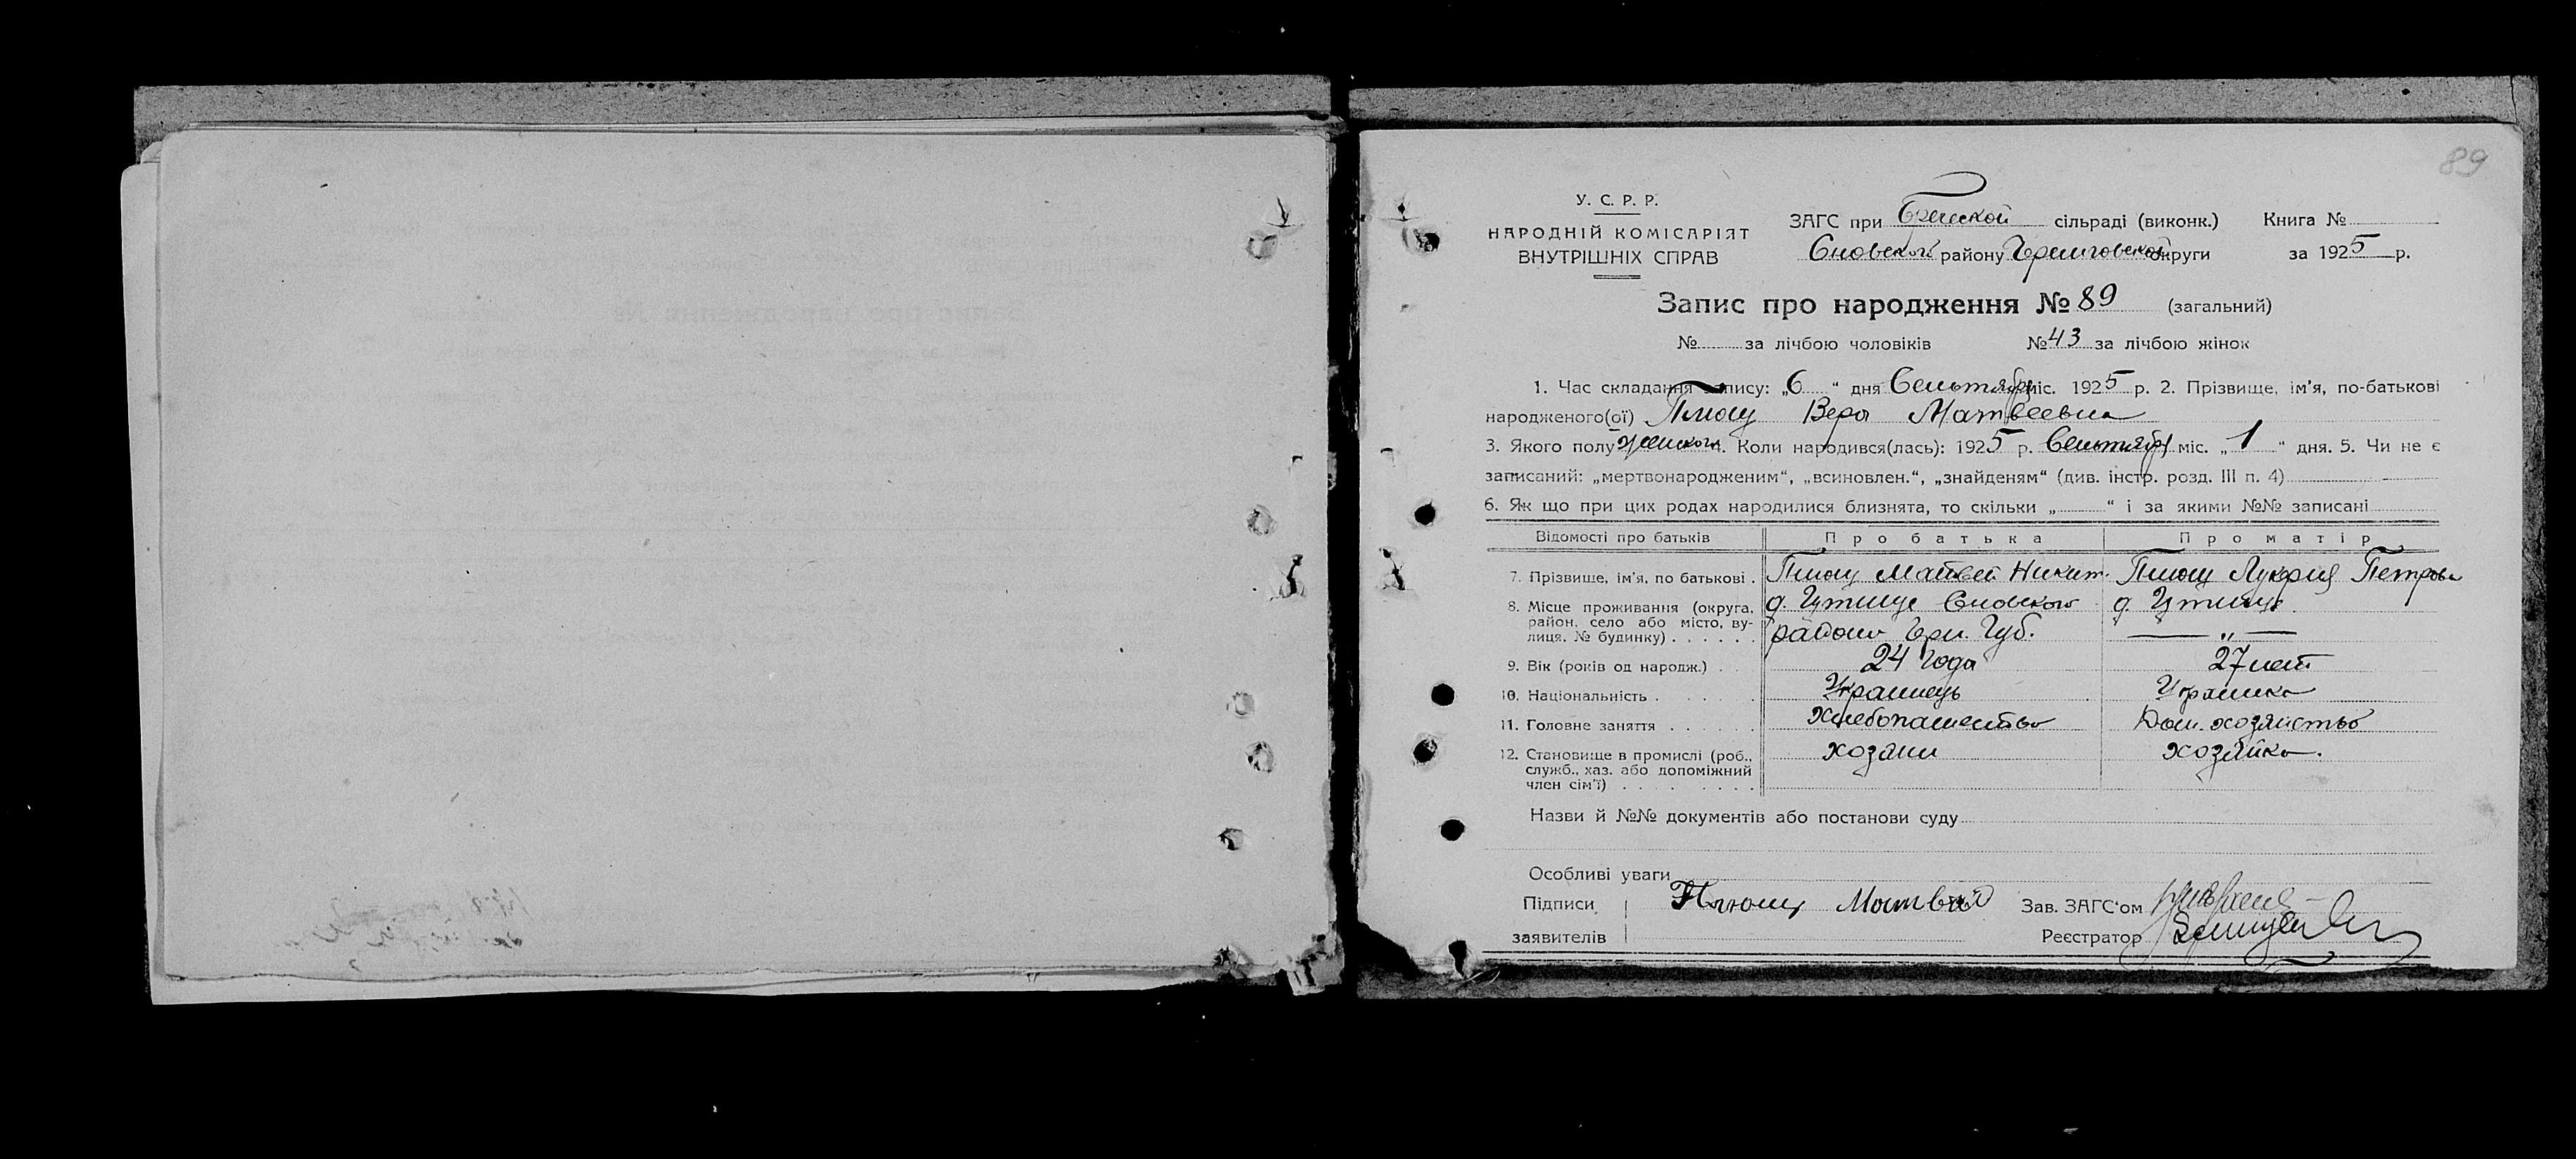 89
У. С. Р. Р.
НАРОДНІЙ КОМІСАРІЯТ
ВНУТРІШНІХ СПРАВ
ЗАГС при сільраді (виконк.) Книга №
Сновской району Черниговской округи за 1925 р.
Запис про народження № 89 (загальний)
№ за лічбою чоловіків № 43 за лічбою жінок
1. Час складання запису: „6“ дня Сентября міс. 1925 р. 2. Прізвище, ім'я, по-батькові
народженого(ої) Плющ Вера Матвеевна
3. Якого полу женского 4. Коли народився(лась): 1925 р. Сентября міс. „1“ дня. 5. Чи не є
записаний: „мертвонародженим“, „всиновлен.“, „знайденям“ (див. інстр. розд. III п. 4)
6. Як що при цих родах народилися близнята, то скільки „ “ і за якими №№ записані
Відомості про батьків Про батька Про матір
7. Прізвище, ім'я, по батькові . Плющ Матвей Никит. Плющ Лукерия Петрова
8. Місце проживання (округа, д. Гутище Сновского д. Гутище.
район, село або місто, ву-
лиця, № будинку) . . . . . . района Чрн. Губ. — „ —
9. Вік (років од народж.) . . 24 года 27 лет
10. Національність . . . . . Украинець Украинка
11. Головне заняття . . . . . . Хлебопашество Дом. хозяйство
12. Становище в промислі (роб., хозяин хозяйка.
служб., хаз. або допоміжний
член сім'ї) . . . . . . . .
Назви й №№ документів або постанови суду
Особливі уваги
Підписи Плющ Матвей Зав. ЗАГС'ом
заявителів Реєстратор